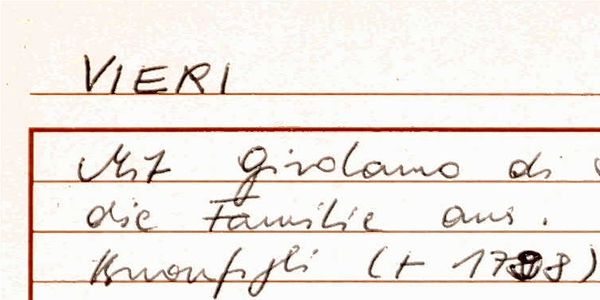 VIERI
Mit Girolamo di
die Familie aus.
Buonfigli (+ 1783)